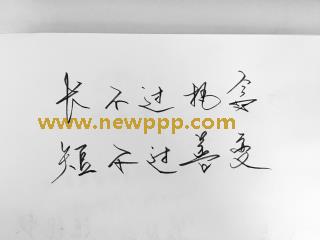 长不过执念
www.newppp.com
短不过善变